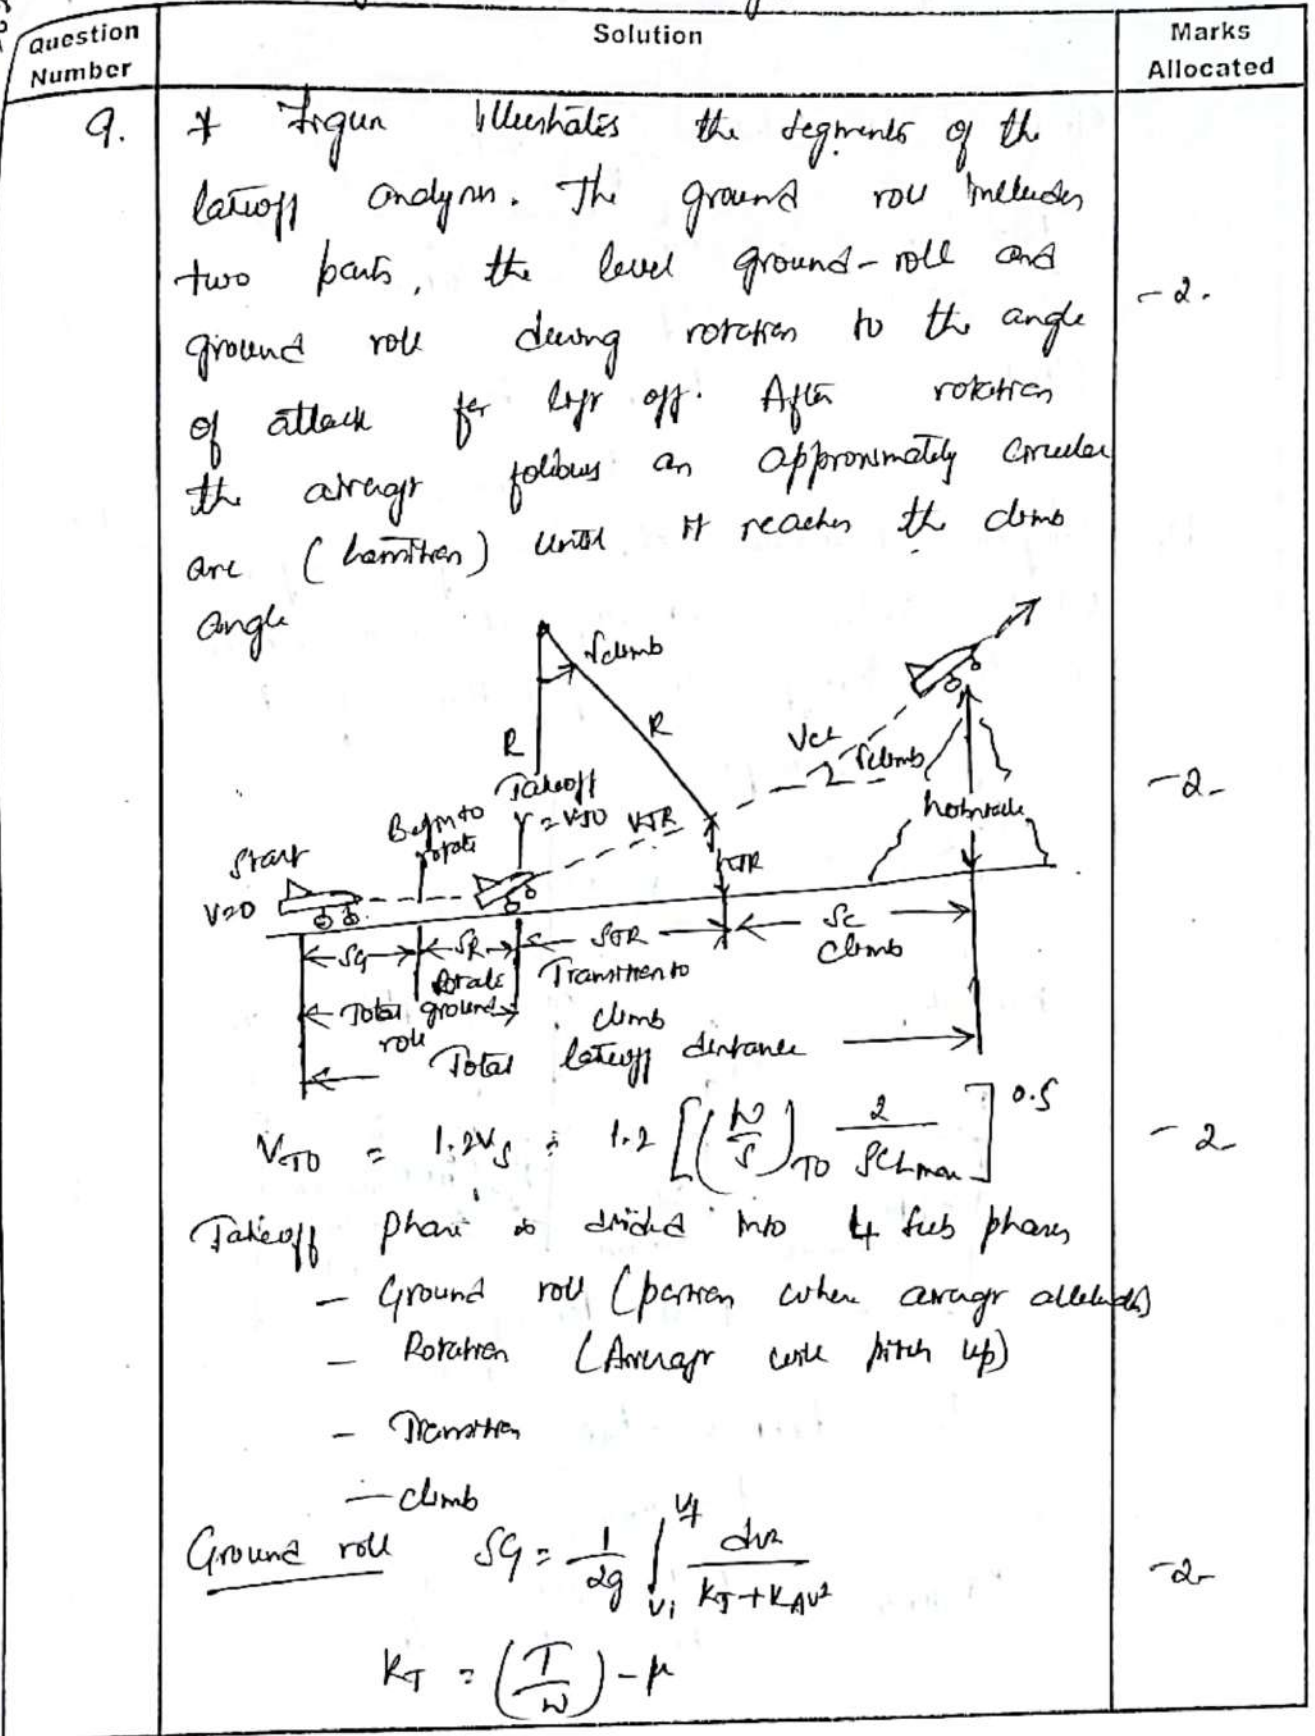 Question Number
Solution
Marks Allocated
9.
* Figure illustrates the segments of the
takeoff analysis. The ground roll includes
two parts, the level ground-roll and
ground roll during rotation to the angle
of attack for lift off. After rotation
the aircraft follows an approximately circular
arc (transition) until it reaches the climb
angle
-2-
γclimb
R
R
Takeoff
V=VTO
VTR
Begin to
rotate
Start
V=0
hTR
VCL
γclimb
hobstacle
-2-
SG
SR
STR
SC
Climb
Rotate
Transition to
climb
Total ground
roll
Total takeoff distance
VTO = 1.2VS = 1.2 [(W/S)TO 2/ρCLmax]^0.5
-2-
Takeoff phase is divided into 4 sub phases
- Ground roll (portion where aircraft
- Rotation (Aircraft will pitch up)
- Transition
- climb
Ground roll SG = 1/2g ∫Vi^Vf dV²/KT+KAV²
-2-
KT = (T/W) - μ